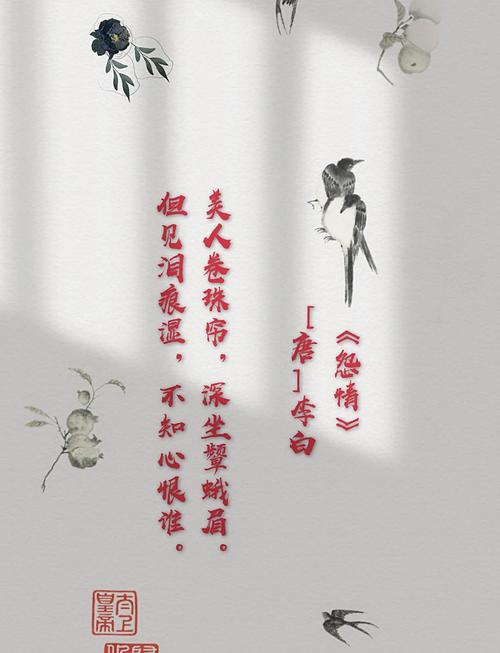 《怨情》
[唐]李白
美人卷珠帘，深坐颦蛾眉。
但见泪痕湿，不知心恨谁。
太上
皇帝